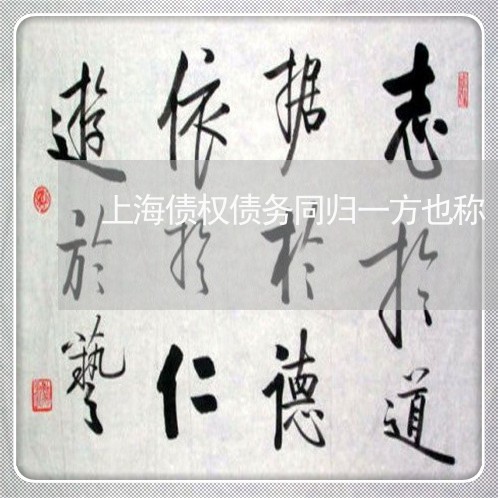 志於道
据於德
依於仁
遊於藝
上海债权债务同归一方也称